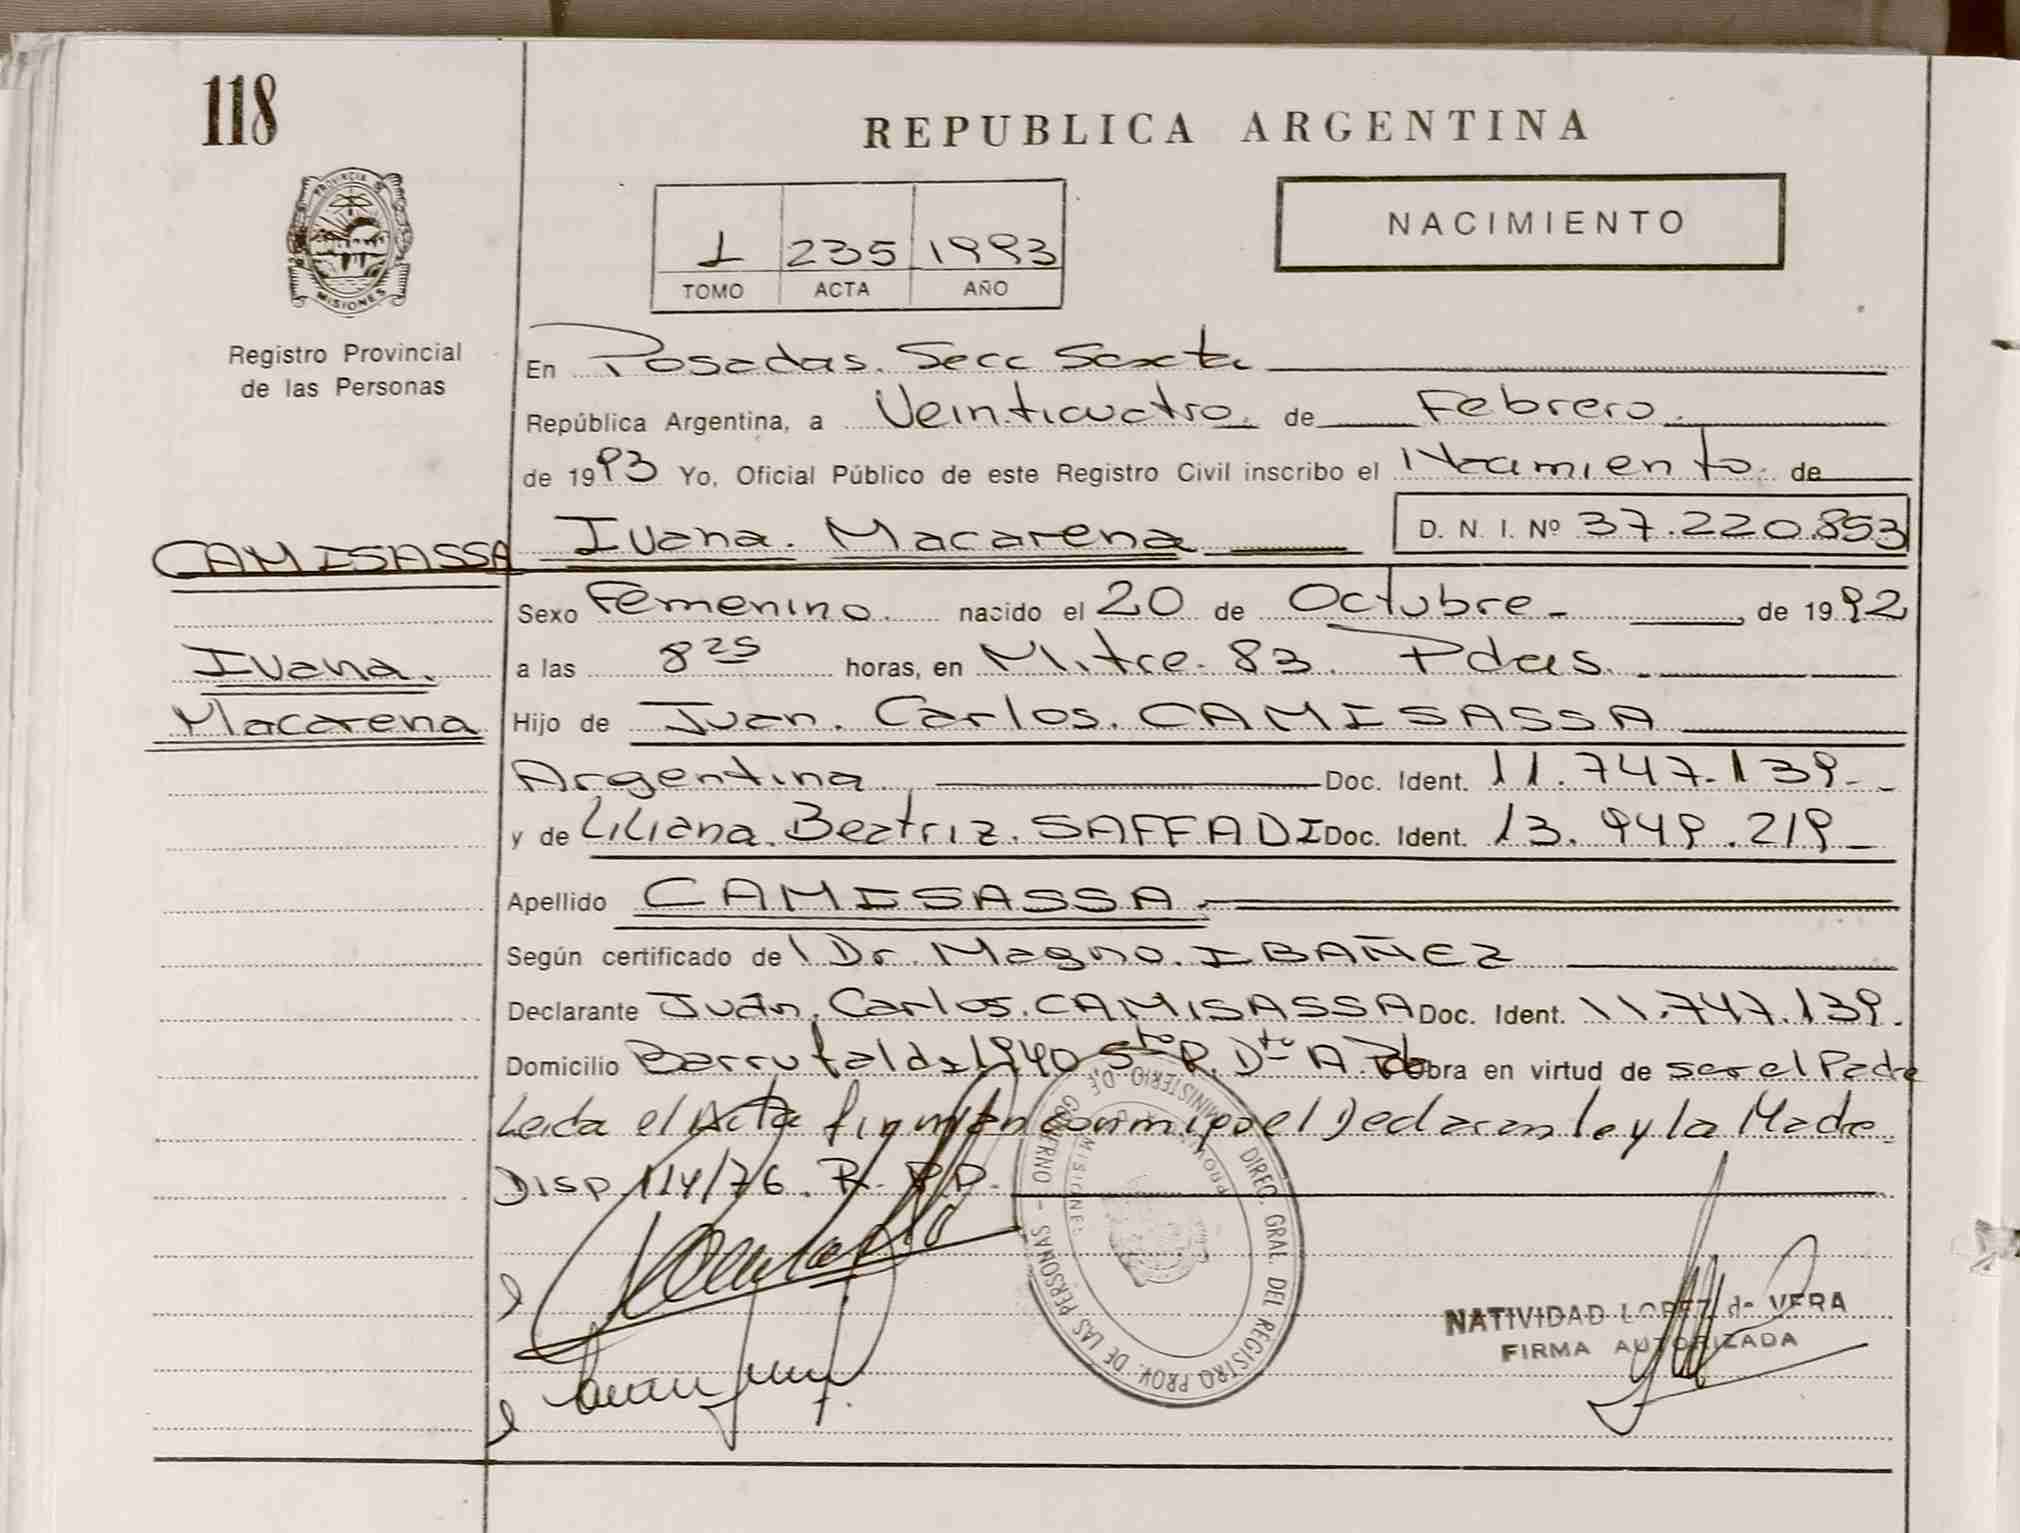 118
REPUBLICA ARGENTINA
NACIMIENTO
1 235 1993
TOMO ACTA AÑO
PROVINCIA DE
MISIONES
Registro Provincial
de las Personas
En Posadas. Secc Sexta
República Argentina, a Veinticuatro. de Febrero.
de 1993 Yo, Oficial Público de este Registro Civil inscribo el Nacimiento. de
CAMISASSA Ivana. Macarena D. N. I. Nº 37.220.853
Sexo Femenino. nacido el 20 de Octubre - , de 1992
Ivana. a las 8 25 horas, en Mitre. 83. Pdas.
Macarena Hijo de Juan. Carlos. CAMISASSA
Argentina Doc. Ident. 11.747.139-
y de Liliana. Beatriz. SAFFADI Doc. Ident. 13.949.219
Apellido CAMISASSA.
Según certificado del Dr. Magno. IBAÑEZ
Declarante Juan. Carlos. CAMISASSA Doc. Ident. 11.747.139.
Domicilio 1940 5to P. Dto A. obra en virtud de ser el Padre
Leida el Acta firman conmigo el Declarante y la Madre.
DISP 114/76. R. P. P.
MINISTERIO DE GOBIERNO - DIREC. GRAL. DEL REGISTRO PROV. DE LAS PERSONAS
MISIONES
NATIVIDAD LOPEZ de VERA
FIRMA AUTORIZADA